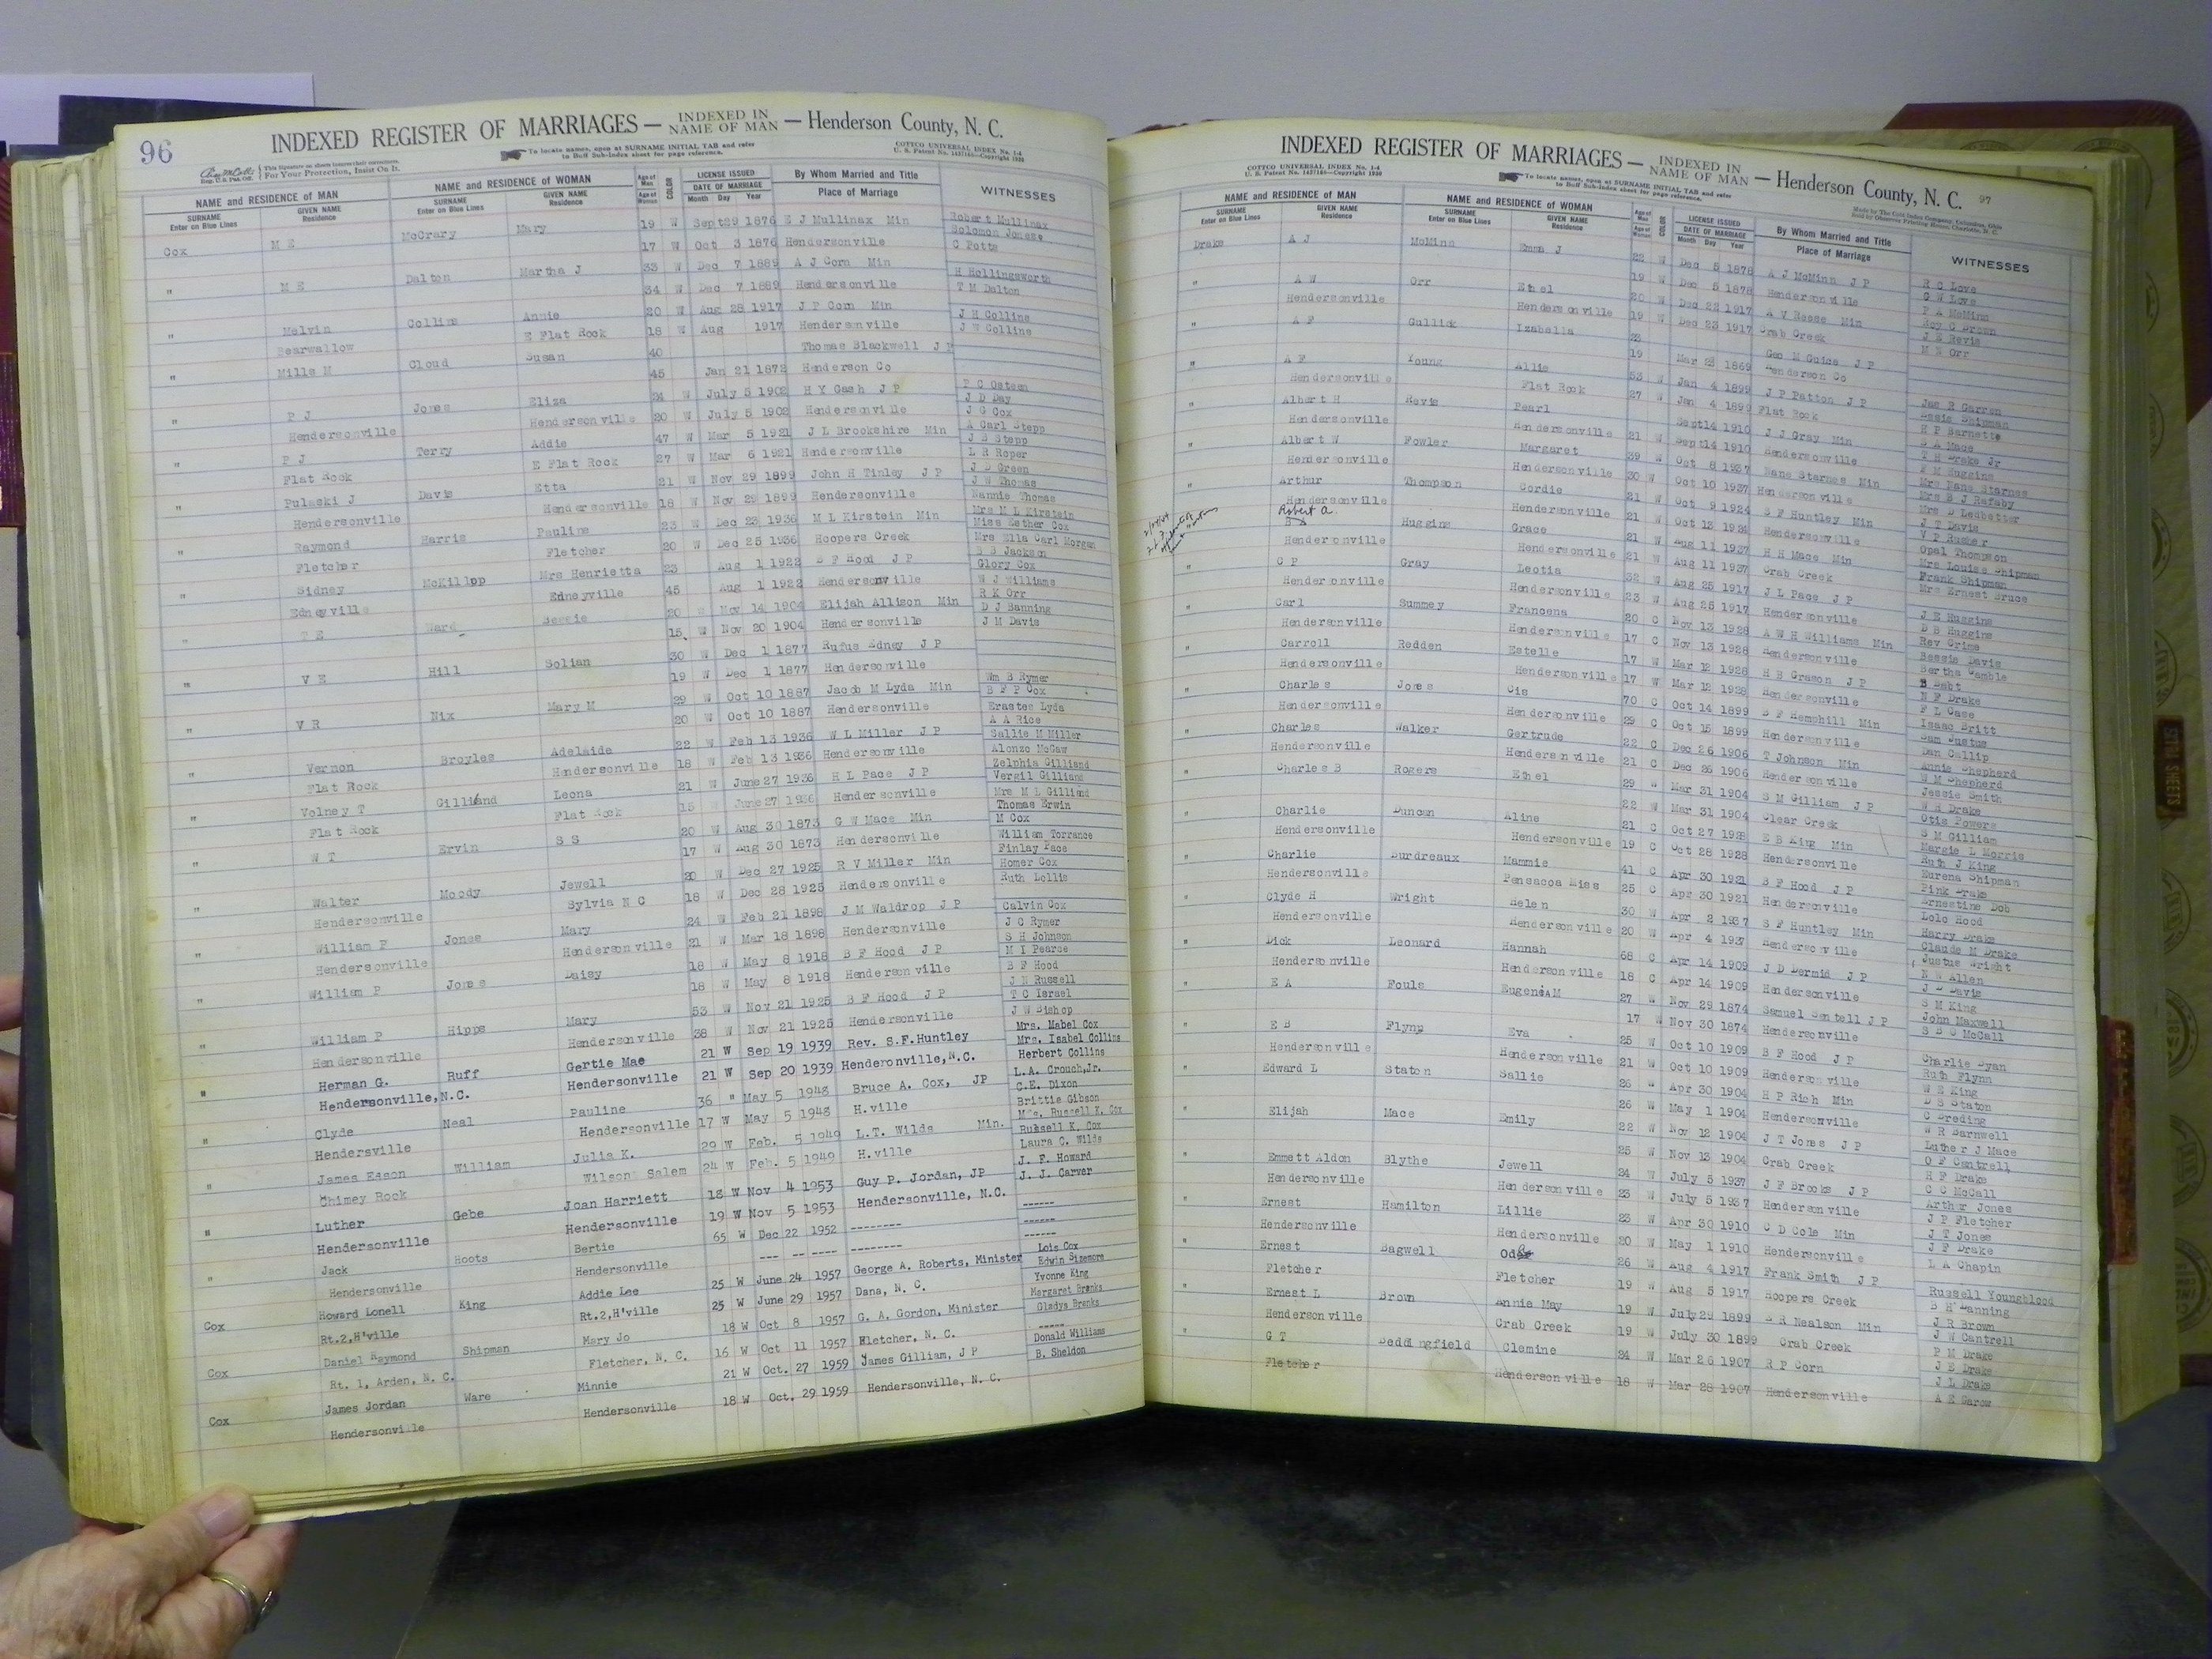 96
INDEXED REGISTER OF MARRIAGES — INDEXED IN NAME OF MAN — Henderson County, N. C.
To locate names, open at SURNAME INITIAL TAB and refer to Buff Sub-Index sheet for page reference.
COTTCO UNIVERSAL INDEX No. 1-4
For Your Protection, Insist On It.
NAME and RESIDENCE of MAN NAME and RESIDENCE of WOMAN Age of Man Age of Woman COLOR LICENSE ISSUED DATE OF MARRIAGE By Whom Married and Title Place of Marriage WITNESSES
SURNAME Enter on Blue Lines GIVEN NAME Residence SURNAME Enter on Blue Lines GIVEN NAME Residence Month Day Year
Cox M E McCrary Mary 19 W Sept29 1876 E J Mullinax Min Robert Mullinax
Solomon Jones
17 W Oct 3 1876 Hendersonville C Potts
" M E Dalton Martha J 33 W Dec 7 1889 A J Corn Min H Hollingsworth
34 W Dec 7 1889 Hendersonville T M Dalton
" Melvin Collins Annie 20 W Aug 28 1917 J P Corn Min J H Collins
Bearwallow E Flat Rock 18 W Aug 1917 Hendersonville J W Collins
" Mills M Cloud Susan 40 Thomas Blackwell J P
45 Jan 21 1872 Henderson Co
" P J Jones Eliza 24 W July 5 1902 H Y Gash J P P C Osteen
J D Day
Hendersonville Hendersonville 20 W July 5 1902 Hendersonville J G Cox
" P J Terry Addie 47 W Mar 5 1921 J L Brookshire Min A Carl Stepp
J B Stepp
Flat Rock E Flat Rock 27 W Mar 6 1921 Hendersonville L R Roper
" Pulaski J Davis Etta 21 W Nov 29 1899 John H Tinley J P J D Green
J W Thomas
Hendersonville Hendersonville 18 W Nov 29 1899 Hendersonville Nannie Thomas
" Raymond Harris Pauline 23 W Dec 23 1936 M L Kirstein Min Mrs M L Kirstein
Miss Esther Cox
Fletcher Fletcher 20 W Dec 25 1936 Hoopers Creek Mrs Ella Carl Morgan
" Sidney McKillop Mrs Henrietta 23 Aug 1 1922 B F Hood J P Jackson
Glory Cox
Edneyville Edneyville 45 Aug 1 1922 Hendersonville W J Williams
" T E Ward Bessie 20 Nov 14 1904 Elijah Allison Min R K Orr
D J Banning
15 W Nov 20 1904 Hendersonville J M Davis
" V E Hill Solian 30 W Dec 1 1877 Rufus Edney J P
19 W Dec 1 1877 Hendersonville
" V R Nix Mary M 29 W Oct 10 1887 Jacob M Lyda Min Wm B Rymer
B F P Cox
20 W Oct 10 1887 Hendersonville Erastes Lyda
" Vernon Broyles Adelaide 22 W Feb 13 1936 W L Miller J P A A Rice
Sallie M Miller
Flat Rock Hendersonville 18 W Feb 13 1936 Hendersonville Alonzo McGaw
" Volney T Gilliand Leona 21 W June 27 1936 H L Pace J P Zelphia Gilliand
Vergil Gilliand
Flat Rock Flat Rock 15 June 27 1936 Hendersonville Mrs M L Gilliand
" W T Ervin S S 20 W Aug 30 1873 G W Mace Min Thomas Erwin
M Cox
17 W Aug 30 1873 Hendersonville William Torrance
" Walter Moody Jewell 20 W Dec 27 1925 R V Miller Min Finlay Pace
Homer Cox
Hendersonville Sylvia N C 18 W Dec 28 1925 Hendersonville Ruth Lollis
" William P Jones Mary 24 W Feb 21 1898 J M Waldrop J P Calvin Cox
J C Rymer
Hendersonville Hendersonville 21 W Mar 18 1898 Hendersonville S H Johnson
" William P Jones Daisy 18 W May 8 1918 B F Hood J P M I Pearce
B F Hood
18 W May 8 1918 Hendersonville J N Russell
" William P Hipps Mary 53 W Nov 21 1925 B F Hood J P T C Israel
J W Bishop
Hendersonville Hendersonville 38 W Nov 21 1925 Hendersonville
" Herman G. Ruff Gertie Mae 21 W Sep 19 1939 Rev. S.F.Huntley Mrs. Mabel Cox
Mrs. Isabel Collins
Hendersonville,N.C. Hendersonville 21 W Sep 20 1939 Henderonville,N.C. Herbert Collins
" Clyde Neal Pauline 36 " May 5 1948 Bruce A. Cox, JP L.A. Crouch,Jr.
C.E. Dixon
Hendersville Hendersonville 17 W May 5 1948 H.ville Brittie Gibson
" James Eason William Julia K. 29 W Feb. 5 1949 L.T. Wilds Min. Mrs. Russell K. Cox
Russell K. Cox
Chimey Rock Wilson Salem 24 W Feb. 5 1949 H.ville Laura C. Wilds
" Luther Gebe Joan Harriett 18 W Nov 4 1953 Guy P. Jordan, JP J. F. Howard
J. J. Carver
Hendersonville Hendersonville 19 W Nov 5 1953 Hendersonville, N.C.
" Jack Hoots Bertie 65 W Dec 22 1952 -------- ------
Hendersonville Hendersonville --- -- ---- -------- ------
Cox Howard Lonell King Addie Lee 25 W June 24 1957 George A. Roberts, Minister Lois Cox
Edwin Sizemore
Rt.2,H'ville Rt.2,H'ville 25 W June 29 1957 Dana, N. C. Yvonne King
Cox Daniel Raymond Shipman Mary Jo 18 W Oct 8 1957 G. A. Gordon, Minister Margaret Branks
Gladys Branks
Rt. 1, Arden, N. C. Fletcher, N. C. 16 W Oct 11 1957 Fletcher, N. C. -----
Cox James Jordan Ware Minnie 21 W Oct. 27 1959 James Gilliam, J P Donald Williams
B. Sheldon
Hendersonville Hendersonville 18 W Oct. 29 1959 Hendersonville, N. C.
INDEXED REGISTER OF MARRIAGES — INDEXED IN NAME OF MAN — Henderson County, N. C. 97
COTTCO UNIVERSAL INDEX No. 1-4
To locate names, open at SURNAME INITIAL TAB and refer to Buff Sub-Index sheet for page reference.
NAME and RESIDENCE of MAN NAME and RESIDENCE of WOMAN Age of Man Age of Woman COLOR LICENSE ISSUED DATE OF MARRIAGE By Whom Married and Title Place of Marriage WITNESSES
SURNAME Enter on Blue Lines GIVEN NAME Residence SURNAME Enter on Blue Lines GIVEN NAME Residence Month Day Year
Drake A J McMinn Emma J 22 W Dec 5 1878 A J McMinn J P R C Love
G W Love
19 W Dec 5 1878 Hendersonville P A McMinn
" A W Orr Ethel 20 W Dec 22 1917 A V Reese Min Roy C Brown
J E Revis
Hendersonville Hendersonville 19 W Dec 23 1917 Crab Creek M E Orr
" A F Gullick Izabella 22 Geo M Guice J P
19 Mar 23 1869 Henderson Co
" A F Young Allie 53 W Jan 4 1899 J P Patton J P Jas R Garren
Essie Shipman
Hendersonville Flat Rock 27 W Jan 4 1899 Flat Rock H P Barnette
" Albert H Revis Pearl Sept14 1910 J J Gray Min S A Mace
T H Drake Jr
Hendersonville Hendersonville 21 W Sept14 1910 Hendersonville F M Huggins
" Albert W Fowler Margaret 39 W Oct 8 1937 Nane Starnes Min Mrs Nane Starnes
Mrs B J Rafaby
Hendersonville Hendersonville 30 W Oct 10 1937 Hendersonville Mrs D Ledbetter
" Arthur Thompson Cordie 21 W Oct 9 1924 S F Huntley Min J T Davis
V P Rucker
Hendersonville 21 W Oct 12 1924 Hendersonville Opal Thompson
Robert A.
Huggins Grace 21 W Aug 11 1937 H H Mace Min Mrs Louise Shipman
Frank Shipman
Hendersonville Hendersonville 21 W Aug 11 1937 Crab Creek Mrs Ernest Bruce
" C P Gray Leotia 32 W Aug 25 1917 J L Pace J P J E Huggins
D B Huggins
Hendersonville Hendersonville 23 W Aug 25 1917 Hendersonville Rev Crime
" Carl Summey Francena 20 C Nov 13 1928 A W H Williams Min Bessie Davis
Bertha Gamble
Hendersonville Hendersonville 17 C Nov 13 1928 Hendersonville B Dabt
" Carroll Redden Estelle 17 W Mar 12 1928 H B Grason J P N F Drake
F L Case
Hendersonville Hendersonville 17 W Mar 12 1928 Hendersonville Isaac Britt
" Charles Jones Cis 70 C Oct 14 1899 B F Hemphill Min Sam Justus
Dan Callip
Hendersonville Hendersonville 29 C Oct 15 1899 Hendersonville Annie Shepherd
" Charles Walker Gertrude 22 C Dec 26 1906 T Johnson Min W M Shepherd
Jessie Smith
Hendersonville Hendersonville 21 C Dec 26 1906 Hendersonville W H Drake
" Charles B Rogers Ethel 29 W Mar 31 1904 S M Gilliam J P Otis Powers
S M Gilliam
22 W Mar 31 1904 Clear Creek Margie L Morris
" Charlie Duncan Aline 21 C Oct 27 1928 E B King Min Ruth J King
Eurena Shipman
Hendersonville Hendersonville 19 C Oct 28 1928 Hendersonville Pink Drake
" Charlie Burdreaux Mammie 41 C Apr 30 1921 B F Hood J P Ernestine Dob
Lolo Hood
Hendersonville Pensacoa Miss 25 C Apr 30 1921 Hendersonville Harry Drake
" Clyde H Wright Helen 30 W Apr 2 1937 S F Huntley Min Claude M Drake
Justus Wright
Hendersonville Hendersonville 20 W Apr 4 1937 Hendersonville N W Allen
" Dick Leonard Hannah 68 C Apr 14 1909 J D Dermid J P J D Davis
S M King
Hendersonville Hendersonville 18 C Apr 14 1909 Hendersonville John Maxwell
" E A Fouls Eugenia M 27 W Nov 29 1874 Samuel Sentell J P S B S McCall
17 W Nov 30 1874 Hendersonville
" E B Flynn Eva 25 W Oct 10 1909 B F Hood J P Charlie Ryan
Ruth Flynn
Hendersonville Hendersonville 21 W Oct 10 1909 Hendersonville W E King
" Edward L Staton Sallie 26 Apr 30 1904 H P Rich Min D S Staton
C Breding
26 W May 1 1904 Hendersonville W R Barnwell
" Elijah Mace Emily 22 W Nov 12 1904 J T Jones J P Luther J Mace
O F Cantrell
25 W Nov 13 1904 Crab Creek H F Drake
" Emmett Aldon Blythe Jewell 24 W July 5 1937 J F Brooks J P C C McCall
Arthur Jones
Hendersonville Hendersonville 23 W July 5 1937 Hendersonville J P Fletcher
" Ernest Hamilton Lillie 23 W Apr 30 1910 C D Cole Min J T Jones
J F Drake
Hendersonville Hendersonville 20 W May 1 1910 Hendersonville L A Chapin
" Ernest Bagwell 26 W Aug 4 1917 Frank Smith J P
Fletcher Fletcher 19 W Aug 5 1917 Hoopers Creek Russell Youngblood
" Ernest L Brown Annie May 19 W July29 1899 B R Nealson Min B H Banning
J R Brown
Hendersonville Crab Creek 19 W July 30 1899 Crab Creek J W Cantrell
" G T Beddingfield Clemine 24 W Mar 26 1907 R P Corn P M Drake
J E Drake
J L Drake
Fletcher Hendersonville 18 W Mar 28 1907 Hendersonville A E Garow
STAL SHEETS